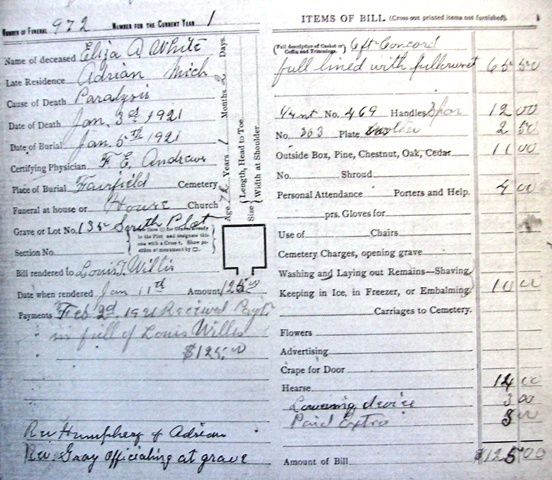 NUMBER OF FUNERAL 972 NUMBER FOR THE CURRENT YEAR 1
Name of deceased Eliza A White
Late Residence Adrian Mich
Cause of Death Paralysis
Date of Death Jan 3rd 1921
Date of Burial Jan 5th 1921
Certifying Physician F. E. Andrews
Place of Burial Fairfield Cemetery
Funeral at house or House Church
Grave or Lot No. 135 South Plot
Section No.
Bill rendered to Louis T. Willis
Date when rendered Jan 11th Amount 125.00
Payments Feb 2d 1921 Received Payt
in full of Louis Willis
$125.00
Rev Humphery of Adrian
Rev Gray officiating at grave
Age, Years Months Days.
Size Length, Head to Toe
Width at Shoulder
ITEMS OF BILL (Cross out printed items not furnished).
Full description of Casket or Coffin and Trimmings. 6ft Concord
full lined with 65 00
No. 469 Handles 12 00
No. 303 Plate 2 50
Outside Box, Pine, Chestnut, Oak, Cedar 11 00
No. Shroud
Personal Attendance Porters and Help. 4 00
prs. Gloves for
Use of Chairs
Cemetery Charges, opening grave
Washing and Laying out Remains—Shaving
Keeping in Ice, in Freezer, or Embalming 10 00
Carriages to Cemetery.
Flowers
Advertising
Crape for Door
Hearse 14 00
Lowering device 3 00
Paid Extra
Amount of Bill $125 00